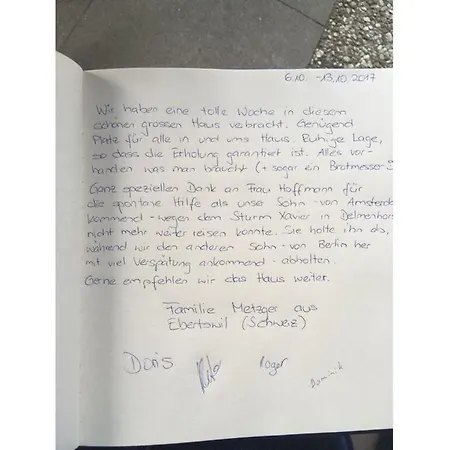 6.10. - 13.10.2017
Wir haben eine tolle Woche in diesem
schönen grossen Haus verbracht. Genügend
Platz für alle in und ums Haus. Ruhige Lage,
so dass die Erholung garantiert ist. Alles vor-
handen was man braucht (+ sogar ein Brotmesser
Ganz speziellen Dank an Frau Hoffmann für
die spontane Hilfe als unser Sohn - von Amsterda
kommend - wegen dem Sturm Xavier in Delmenhors
nicht mehr weiter reisen konnte. Sie holte ihn ab,
während wir den anderen Sohn - von Berlin her
mit viel Verspätung ankommend - abholten.
Gerne empfehlen wir das Haus weiter.
Familie Metzger aus
Ebertswil (Schweiz)
Doris Roger
Dominik